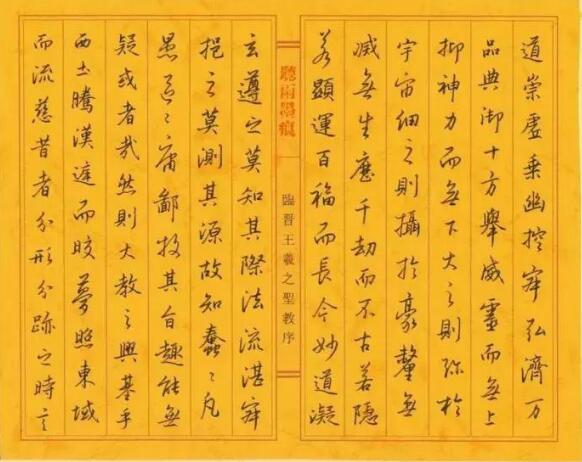 道崇虛乘幽控寂弘濟万
品典御十方舉威靈而無上
抑神力而無下大之則弥於
宇宙細之則攝於豪釐無
滅無生歷千劫而不古若隱
若顯運百福而長今妙道凝
聽雨墨痕
臨晉王羲之聖教序
玄遵之莫知其際法流湛寂
挹之莫測其源故知蠢〻凡
愚區〻庸鄙投其旨趣能無
疑或者哉然則大教之興基乎
西土騰漢庭而皎夢照東域
而流慈昔者分形分跡之時言